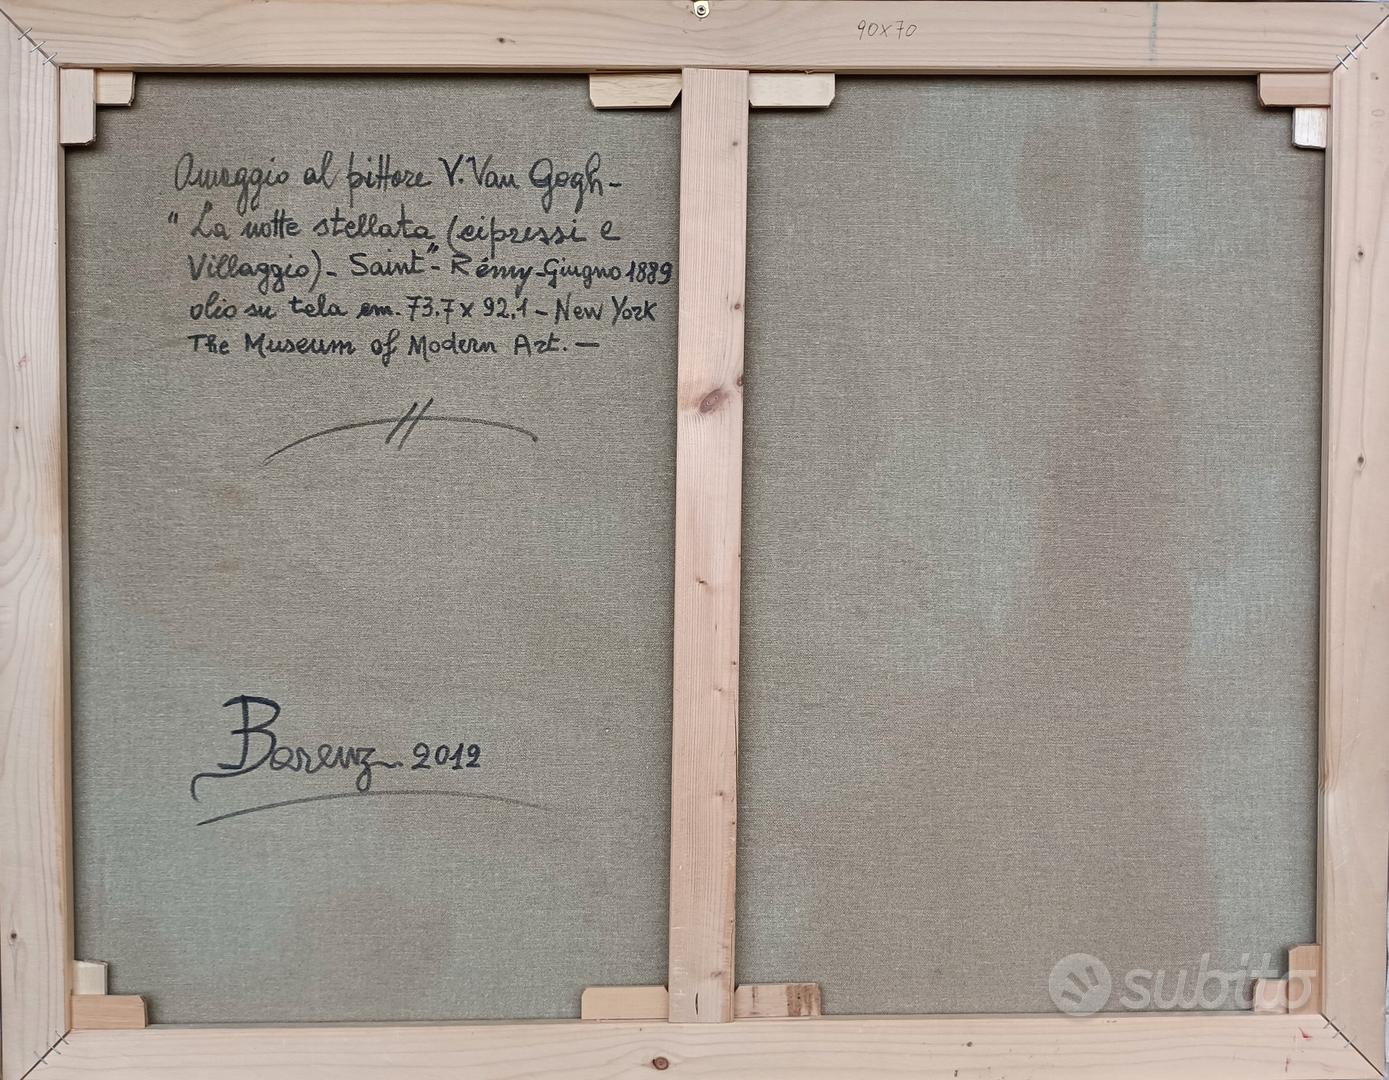 90x70
Omaggio al pittore V. Van Gogh-
"La notte stellata (cipressi e
Villaggio)"- Saint- Rémy-Giugno 1889
olio su tela cm. 73.7 x 92.1 - New York
The Museum of Modern Art. —
Barenz 2012
subito